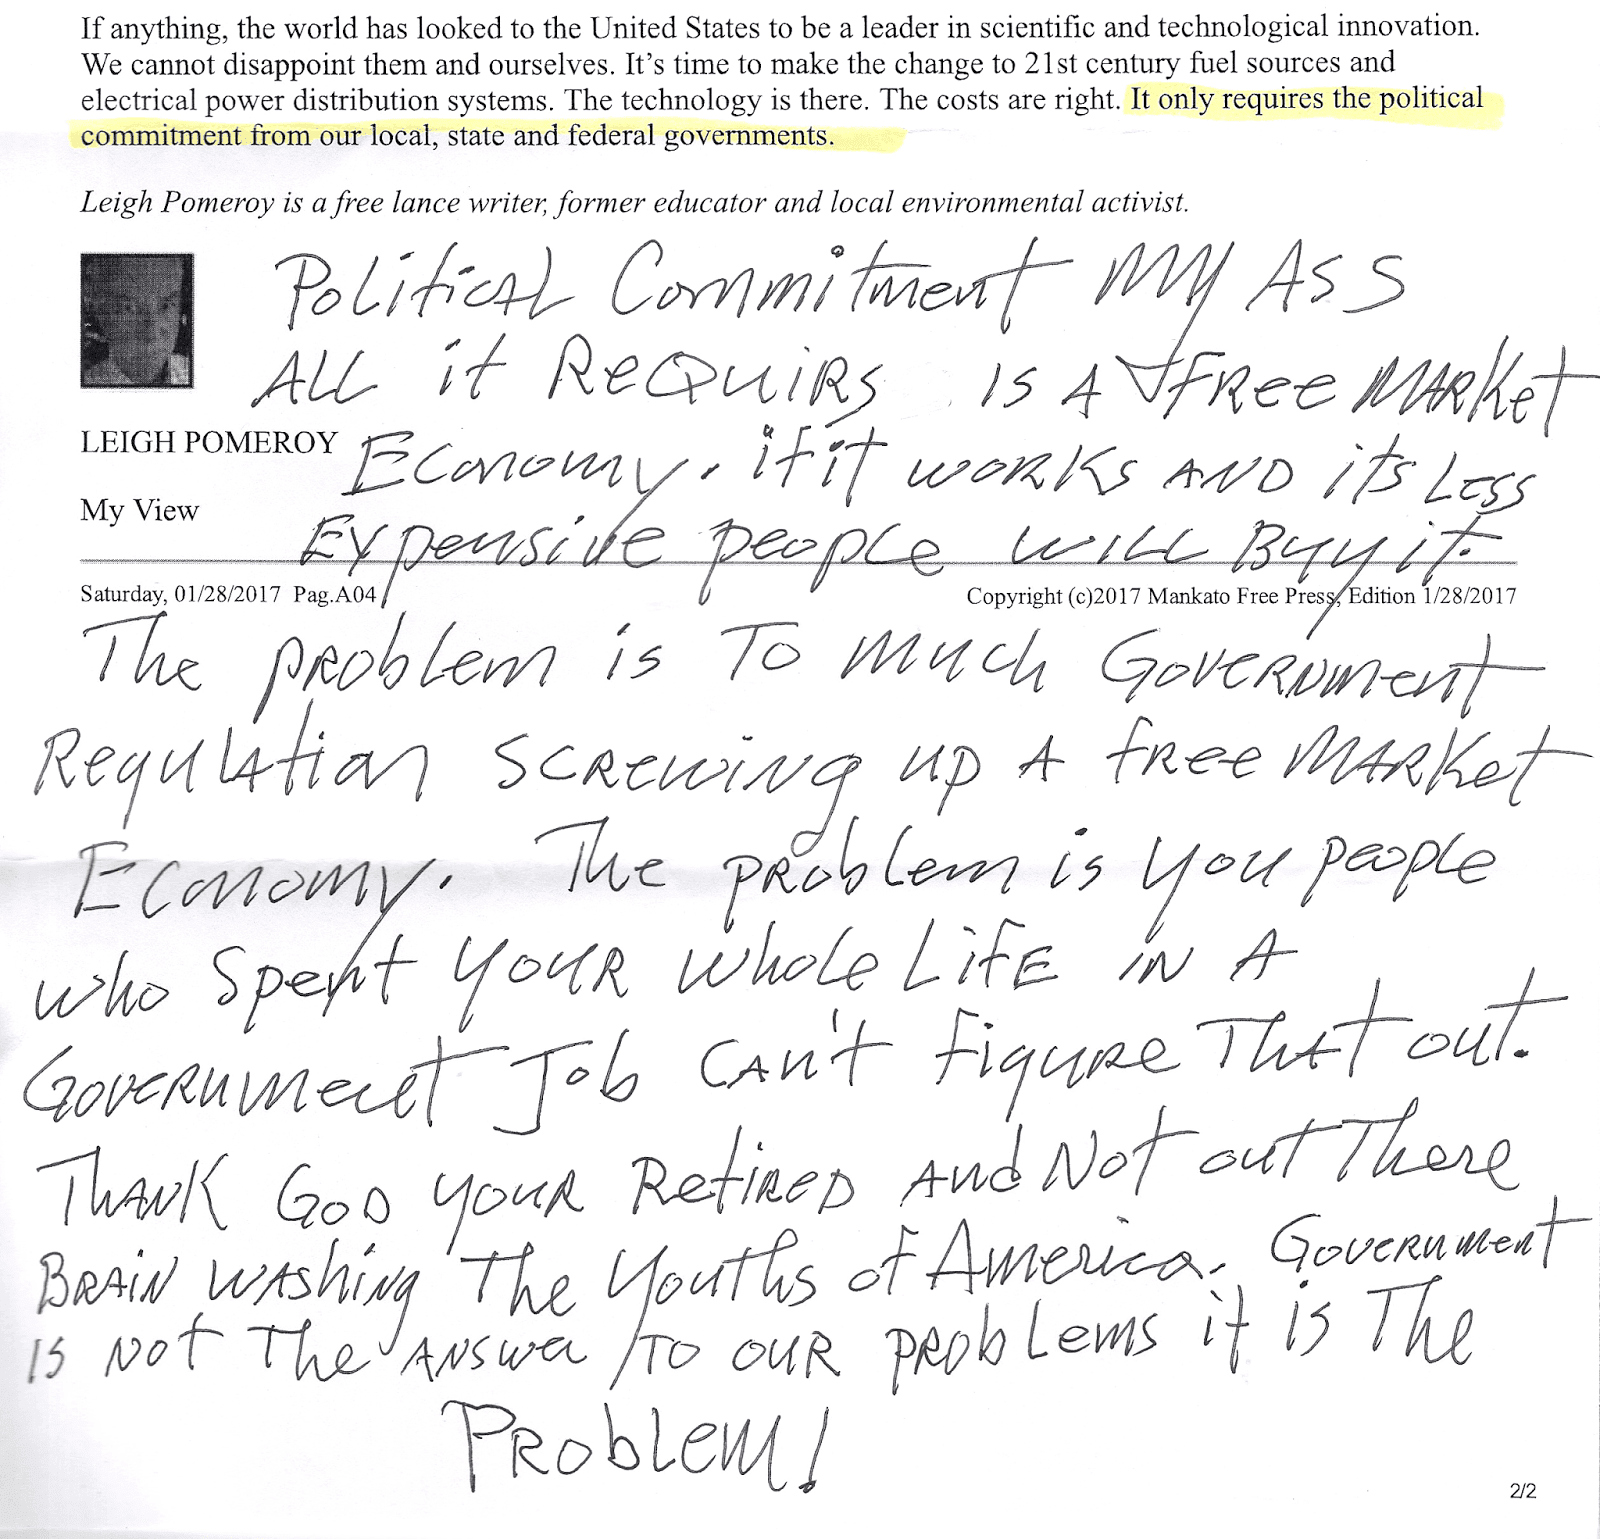 If anything, the world has looked to the United States to be a leader in scientific and technological innovation.
We cannot disappoint them and ourselves. It's time to make the change to 21st century fuel sources and
electrical power distribution systems. The technology is there. The costs are right. It only requires the political
commitment from our local, state and federal governments.
Leigh Pomeroy is a free lance writer, former educator and local environmental activist.
Political Commitment MY ASS
ALL it ReQuiRs is A free MARket
LEIGH POMEROY
Economy. if it works AND its Less
My View
Expensive people will Buy it.
Saturday, 01/28/2017 Pag.A04
Copyright (c)2017 Mankato Free Press, Edition 1/28/2017
The problem is To much Government
Regulation screwing up A free MARket
Economy. The problem is you people
who spent your whole Life in A
Government Job can't figure That out.
Thank God your Retired And Not out There
Brain washing The Youths of America. Government
is not The answer To our problems it is The
Problem!
2/2